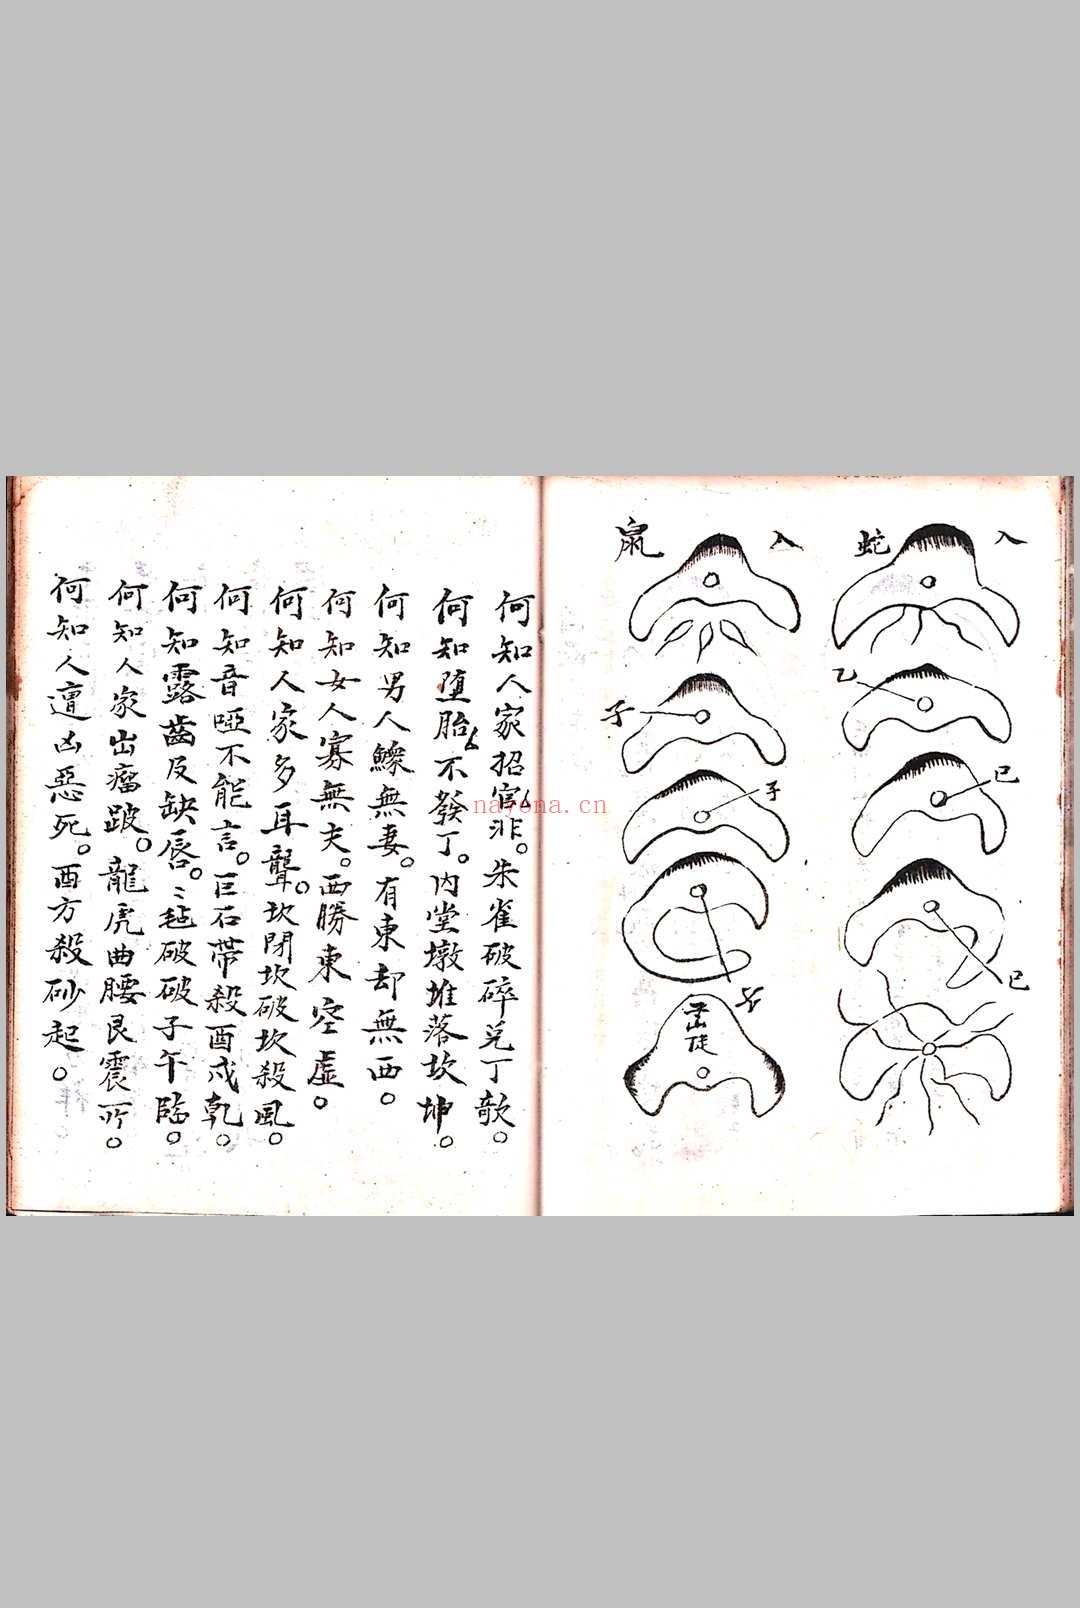 入
蛇
乙
巳
巳
入
鼠
子
子
何知人家招官非。朱雀破碎兌丁欹。
何知墮胎不發丁。內堂墩堆落坎坤。
何知男人鰥無妻。有東却無西。
何知女人寡無夫。西勝東空虛。
何知人家多耳聾。坎閉坎破坎殺風。
何知音啞不能言。巨石帶殺酉戌乾。
何知露齒及缺唇。破破子午臨。
何知人家出瘤跛。龍虎曲腰艮震所。
何知人遭凶惡死。酉方殺砂起。
nayona.cn